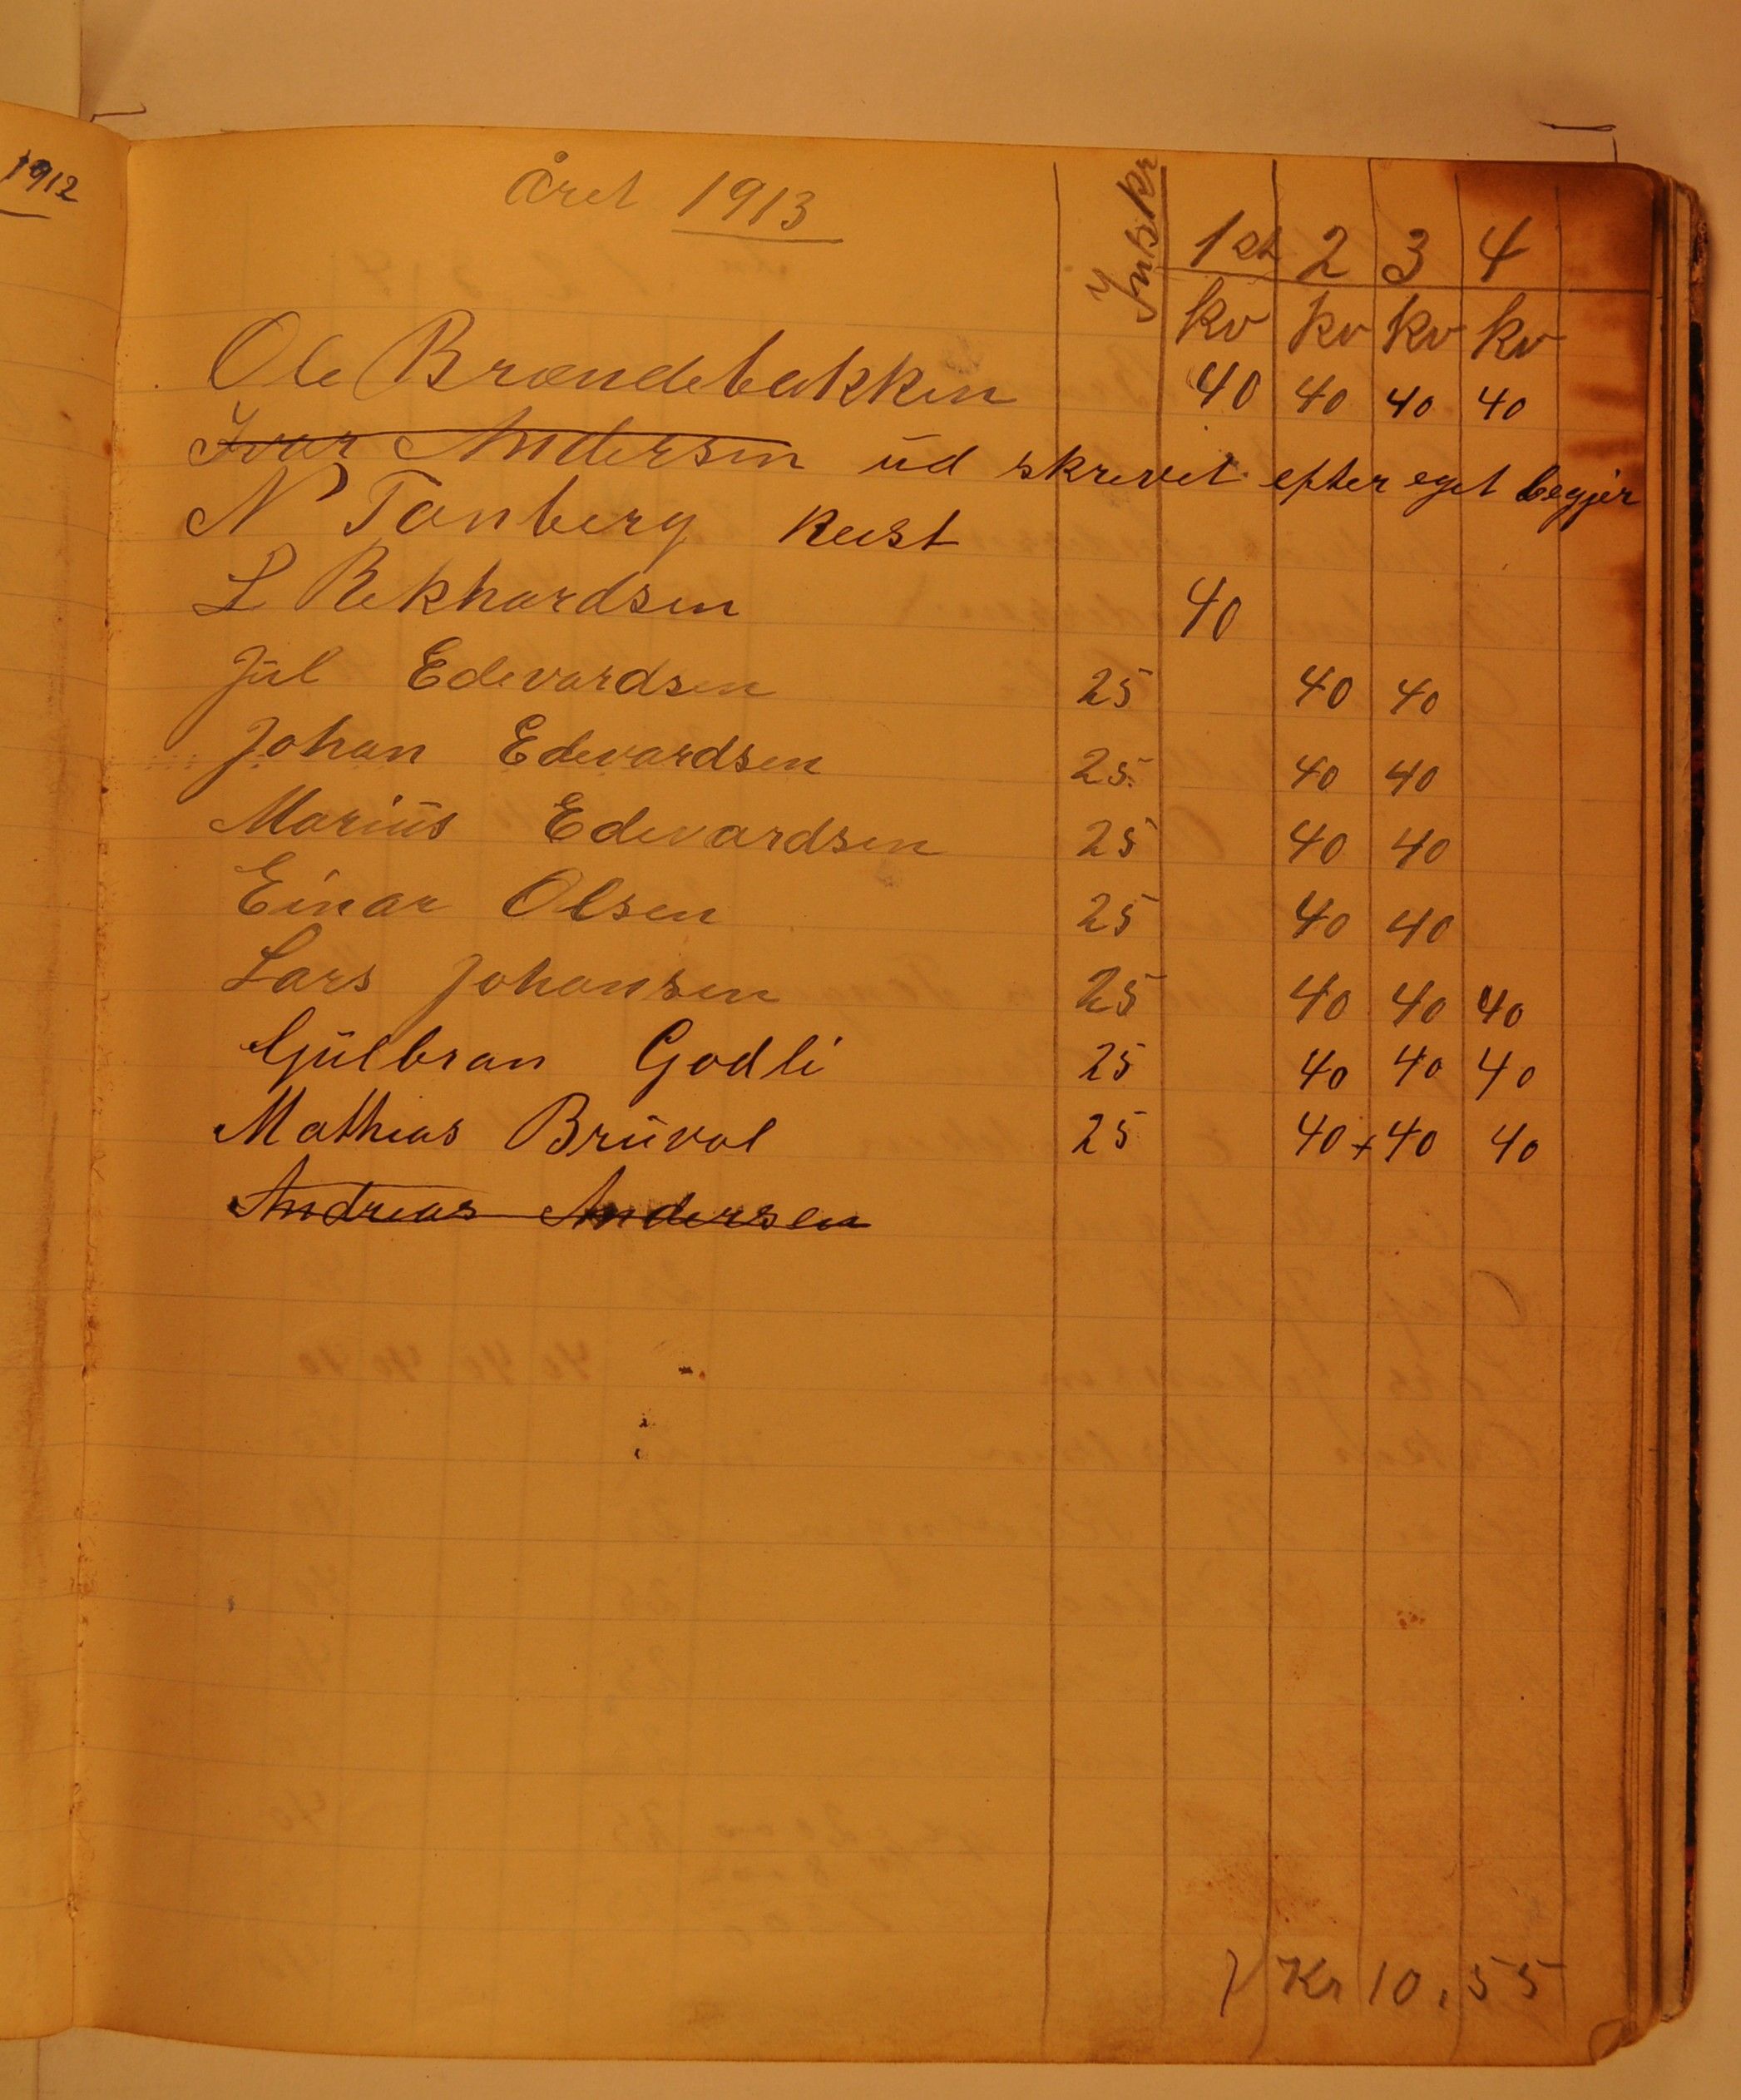 1912
Året 1913
Inskr 1st 2 3 4
kv kv kv kv
Ole Brændebakken 40 40 40 40
Ivar Andersen üd skrevet efter eget begjer
N Tanberg Reist
L Rekhardsen 40
Jül Edevardsen 25 40 40
Johan Edevardsen 25 40 40
Mariüs Edevardsen 25 40 40
Einar Olsen 25 40 40
Lars Johansen 25 40 40 40
Gülbran Godli 25 40 40 40
Mathias Brüvol 25 40 + 40 40
Andreas Andersen
Kr 10,55